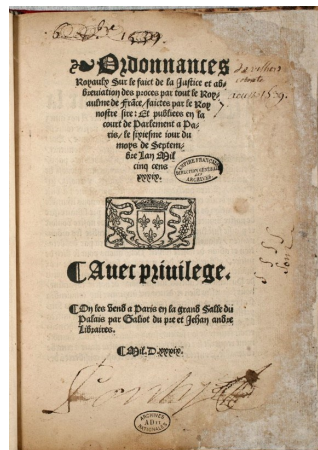 1539.
Ordonnances
Royaulx Sur le faict de la Justice et ab-
breuiation des proces par tout le Roy-
aulme de Frãce, faictes par le Roy
nostre sire: Et publiees en la
court de Parlement a Pa-
ris, le sixiesme iour du
moys de Septem-
bre Lan Mil
cinq cens
xxxix.
EMPIRE FRANCAIS
DIRECTION GENERALE
DES
ARCHIVES
¶Auec priuilege.
¶On les vend a Paris en la grand Salle du
Palais par Galiot du pre et Jehan andre
Libraires.
¶Mil. D. xxxix.
ARCHIVES
AD
NATIONALES